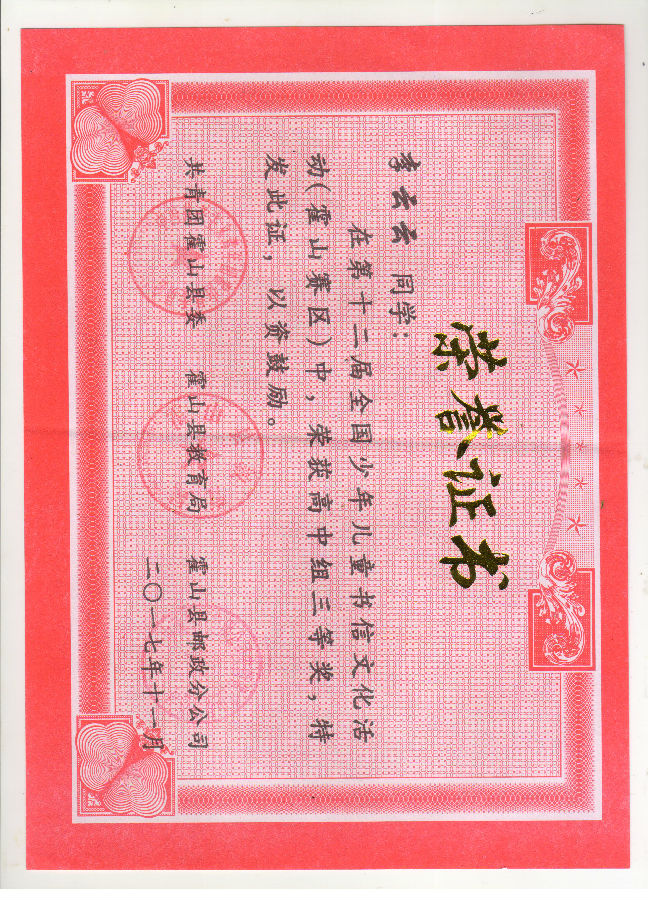 荣誉证书
李云云 同学：
在第十二届全国少年儿童书信文化活
动（霍山赛区）中，荣获高中组三等奖，特
发此证，以资鼓励。
共青团霍山县委 霍山县教育局 霍山县邮政分公司
二〇一七年十一月